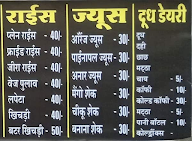 राईस
प्लेन राईस - 30/-
फ्राईड राईस - 40/-
जीरा राईस - 40/-
वेज पुलाव - 40/-
लपेटा - 40/-
खिचड़ी - 40/-
बटर खिचड़ी - 50/-
ज्यूस
ऑरेंज ज्यूस - 30/-
पाईनापल ज्यूस - 30/-
अनार ज्यूस - 30/-
मैंगो शेक - 30/-
चीकू शेक - 30/-
बनाना शेक - 30/-
दूध डेयरी
दूध
दही
छाछ
मट्ठा
चाय - 5/-
कॉफी - 10/-
कोल्ड कॉफी - 30/-
मट्ठा - 5/-
पानी बॉटल - 10/-
कोल्ड्रींक्स